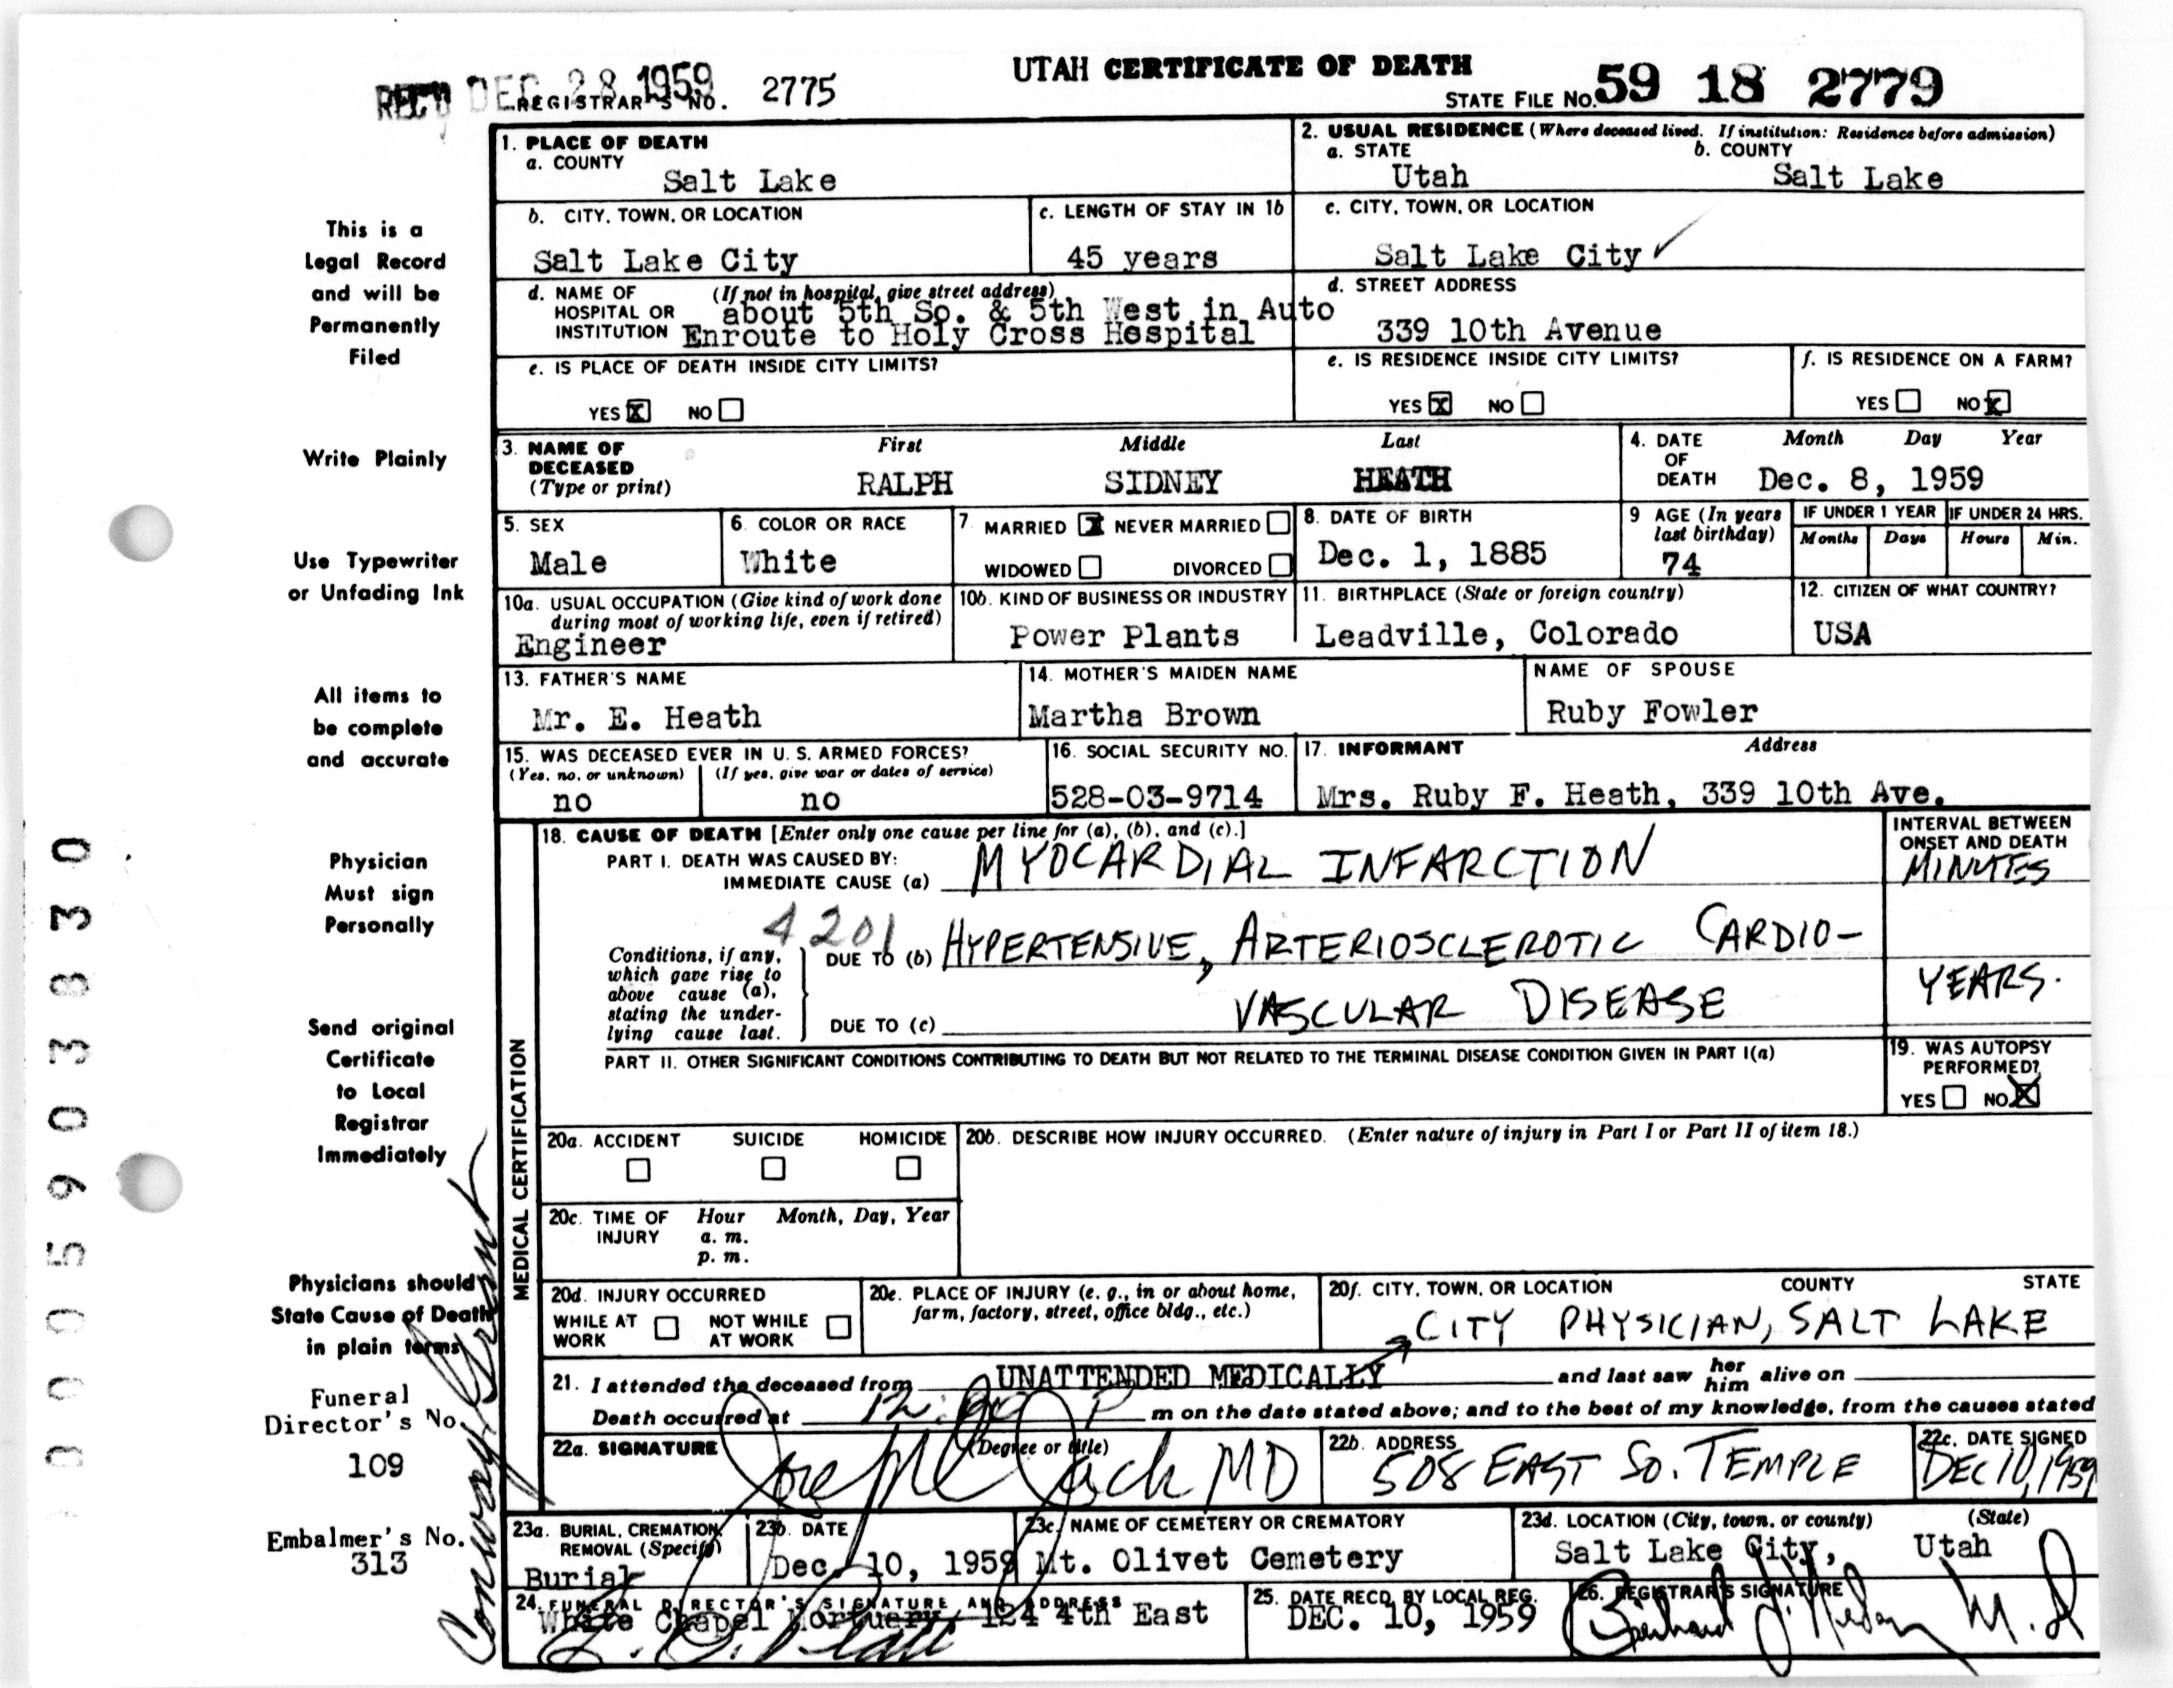 UTAH CERTIFICATE OF DEATH
REC'D DEC 28 1959 REGISTRAR'S NO. 2775
STATE FILE NO. 59 18 2779
This is a
Legal Record
and will be
Permanently
Filed
Write Plainly
Use Typewriter
or Unfading Ink
All items to
be complete
and accurate
Physician
Must sign
Personally
Send original
Certificate
to Local
Registrar
Immediately
Physicians should
State Cause of Death
in plain terms
Funeral
Director's No.
109
Embalmer's No.
313
1. PLACE OF DEATH
a. COUNTY
Salt Lake
2. USUAL RESIDENCE (Where deceased lived. If institution: Residence before admission)
a. STATE b. COUNTY
Utah Salt Lake
b. CITY, TOWN, OR LOCATION
Salt Lake City
c. LENGTH OF STAY IN 1b
45 years
c. CITY, TOWN, OR LOCATION
Salt Lake City
d. NAME OF HOSPITAL OR INSTITUTION (If not in hospital, give street address)
about 5th So. & 5th West in Auto
Enroute to Holy Cross Hospital
d. STREET ADDRESS
339 10th Avenue
e. IS PLACE OF DEATH INSIDE CITY LIMITS?
YES X NO
e. IS RESIDENCE INSIDE CITY LIMITS?
YES X NO
f. IS RESIDENCE ON A FARM?
YES NO X
3. NAME OF DECEASED (Type or print)
First Middle Last
RALPH SIDNEY HEATH
4. DATE OF DEATH Month Day Year
Dec. 8, 1959
5. SEX
Male
6. COLOR OR RACE
White
7 MARRIED X NEVER MARRIED
WIDOWED DIVORCED
8. DATE OF BIRTH
Dec. 1, 1885
9 AGE (In years last birthday)
74
IF UNDER 1 YEAR IF UNDER 24 HRS.
Months Days Hours Min.
10a. USUAL OCCUPATION (Give kind of work done during most of working life, even if retired)
Engineer
10b. KIND OF BUSINESS OR INDUSTRY
Power Plants
11. BIRTHPLACE (State or foreign country)
Leadville, Colorado
12. CITIZEN OF WHAT COUNTRY?
USA
13. FATHER'S NAME
Mr. E. Heath
14. MOTHER'S MAIDEN NAME
Martha Brown
NAME OF SPOUSE
Ruby Fowler
15. WAS DECEASED EVER IN U. S. ARMED FORCES?
(Yes, no, or unknown) (If yes, give war or dates of service)
no no
16. SOCIAL SECURITY NO.
528-03-9714
17. INFORMANT Address
Mrs. Ruby F. Heath, 339 10th Ave.
MEDICAL CERTIFICATION
18. CAUSE OF DEATH [Enter only one cause per line for (a), (b), and (c).]
PART I. DEATH WAS CAUSED BY:
IMMEDIATE CAUSE (a) MYOCARDIAL INFARCTION
INTERVAL BETWEEN ONSET AND DEATH
MINUTES
4201
Conditions, if any, which gave rise to above cause (a), stating the underlying cause last.
DUE TO (b) HYPERTENSIVE, ARTERIOSCLEROTIC CARDIO-
DUE TO (c) VASCULAR DISEASE
YEARS.
PART II. OTHER SIGNIFICANT CONDITIONS CONTRIBUTING TO DEATH BUT NOT RELATED TO THE TERMINAL DISEASE CONDITION GIVEN IN PART I(a)
19. WAS AUTOPSY PERFORMED?
YES NO X
20a. ACCIDENT SUICIDE HOMICIDE
20b. DESCRIBE HOW INJURY OCCURRED. (Enter nature of injury in Part I or Part II of item 18.)
20c. TIME OF INJURY Hour Month, Day, Year
a. m.
p. m.
20d. INJURY OCCURRED
WHILE AT WORK NOT WHILE AT WORK
20e. PLACE OF INJURY (e. g., in or about home, farm, factory, street, office bldg., etc.)
20f. CITY, TOWN, OR LOCATION COUNTY STATE
CITY PHYSICIAN, SALT LAKE
21. I attended the deceased from UNATTENDED MEDICALLY and last saw her him alive on
Death occurred at P m on the date stated above; and to the best of my knowledge, from the causes stated
22a. SIGNATURE (Degree or title)
MD
22b. ADDRESS
508 EAST SO. TEMPLE
22c. DATE SIGNED
DEC 10, 1959
23a. BURIAL, CREMATION, REMOVAL (Specify)
Burial
23b. DATE
Dec. 10, 1959
23c. NAME OF CEMETERY OR CREMATORY
Mt. Olivet Cemetery
23d. LOCATION (City, town, or county) (State)
Salt Lake City, Utah
24. FUNERAL DIRECTOR'S SIGNATURE AND ADDRESS
White Chapel Mortuary, 124 4th East
25. DATE RECD. BY LOCAL REG.
DEC. 10, 1959
26. REGISTRAR'S SIGNATURE
M.D
005903830